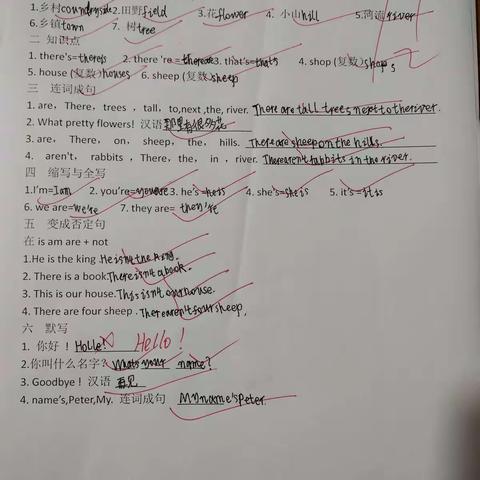 1.乡村countryside 2.田野field 3.花flower 4. 小山hill 5.河流river
6.乡镇town 7. 树tree
二 知识点
1. there's=thereis 2. there 're = thereare 3. that's=thats 4. shop (复数)shops
5. house (复数)houses 6. sheep (复数)sheep
三 连词成句
1. are，There，trees ，tall，to,next ,the, river. There are tall trees next to the river.
2. What pretty flowers! 汉语
3. are， There， on， sheep， the， hills. There are sheep on the hills.
4. aren't， rabbits ，There，the， in ，river. There aren't rabbits in the river.
四 缩写与全写
1.I'm=I am 2. you're=youare 3. he's =he is 4. she's=she is 5. it's=it is
6. we are=we're 7. they are= they're
五 变成否定句
在 is am are + not
1.He is the king .He isn't the king.
2. There is a book.There isn't a book.
3. This is our house.This isn't our house.
4. There are four sheep .There aren't four sheep.
六 默写
1. 你好！Holle! Hello!
2.你叫什么名字？What's your name?
3. Goodbye！汉语 再见
4. name's,Peter,My. 连词成句 My name's Peter.